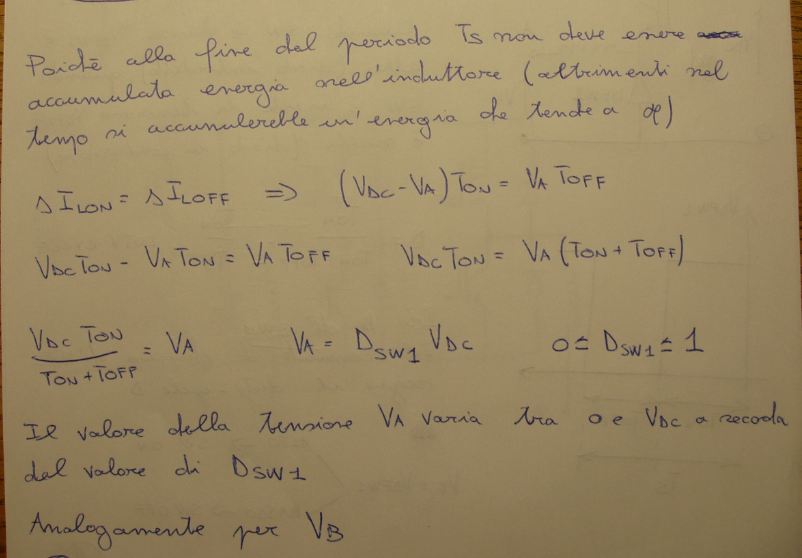 Poichè alla fine del periodo Ts non deve essere
accumulata energia nell'induttore (altrimenti nel
tempo si accumulerebbe un'energia che tende a ∞)
ΔILON = ΔILOFF ⇒ (VDC - VA) TON = VA TOFF
VDC TON - VA TON = VA TOFF VDC TON = VA (TON + TOFF)
VDC TON / TON + TOFF = VA VA = DSW1 VDC 0 ≤ DSW1 ≤ 1
Il valore della tensione VA varia tra 0 e VDC a secoda
del valore di DSW1
Analogamente per VB